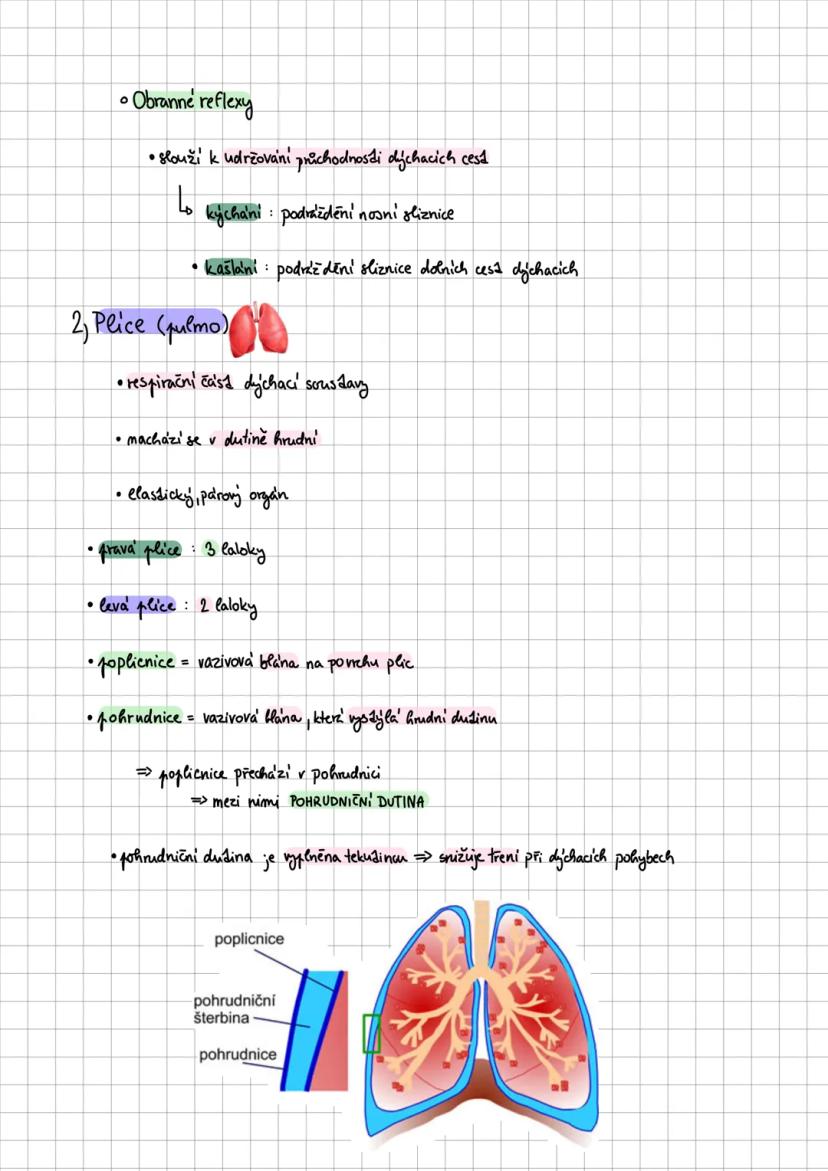 Obranné reflexy
• slouží k udržování průchodnosti dýchacích cest
↳ kýchání : podráždění nosní sliznice
• kašlání : podráždění sliznice dolních cest dýchacích
2) Plíce (pulmo)
• respirační část dýchací soustavy
• nachází se v dutině hrudní
• elastický, párový orgán
• pravá plíce : 3 laloky
• levá plíce : 2 laloky
• poplicnice = vazivová blána na povrchu plic
• pohrudnice = vazivová blána, která vystýlá hrudní dutinu
⇒ poplicnice přechází v pohrudnici
⇒ mezi nimi POHRUDNIČNÍ DUTINA
• pohrudniční dutina je vyplněna tekutinou ⇒ snižuje tření při dýchacích pohybech
poplicnice
pohrudniční
štěrbina
pohrudnice